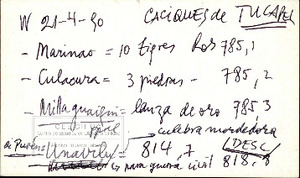 W 21-4-50 CACIQUES de TUCAPEL
- Marinao = 10 tigres Ros 785,1
- Culacura = 3 piedras - 785,2
- Millaguaigui = lanza de oro 785,3
culebra mordedora
a Puren = Unavilu = 814,7 (DESC/
para guerra civil 818,8